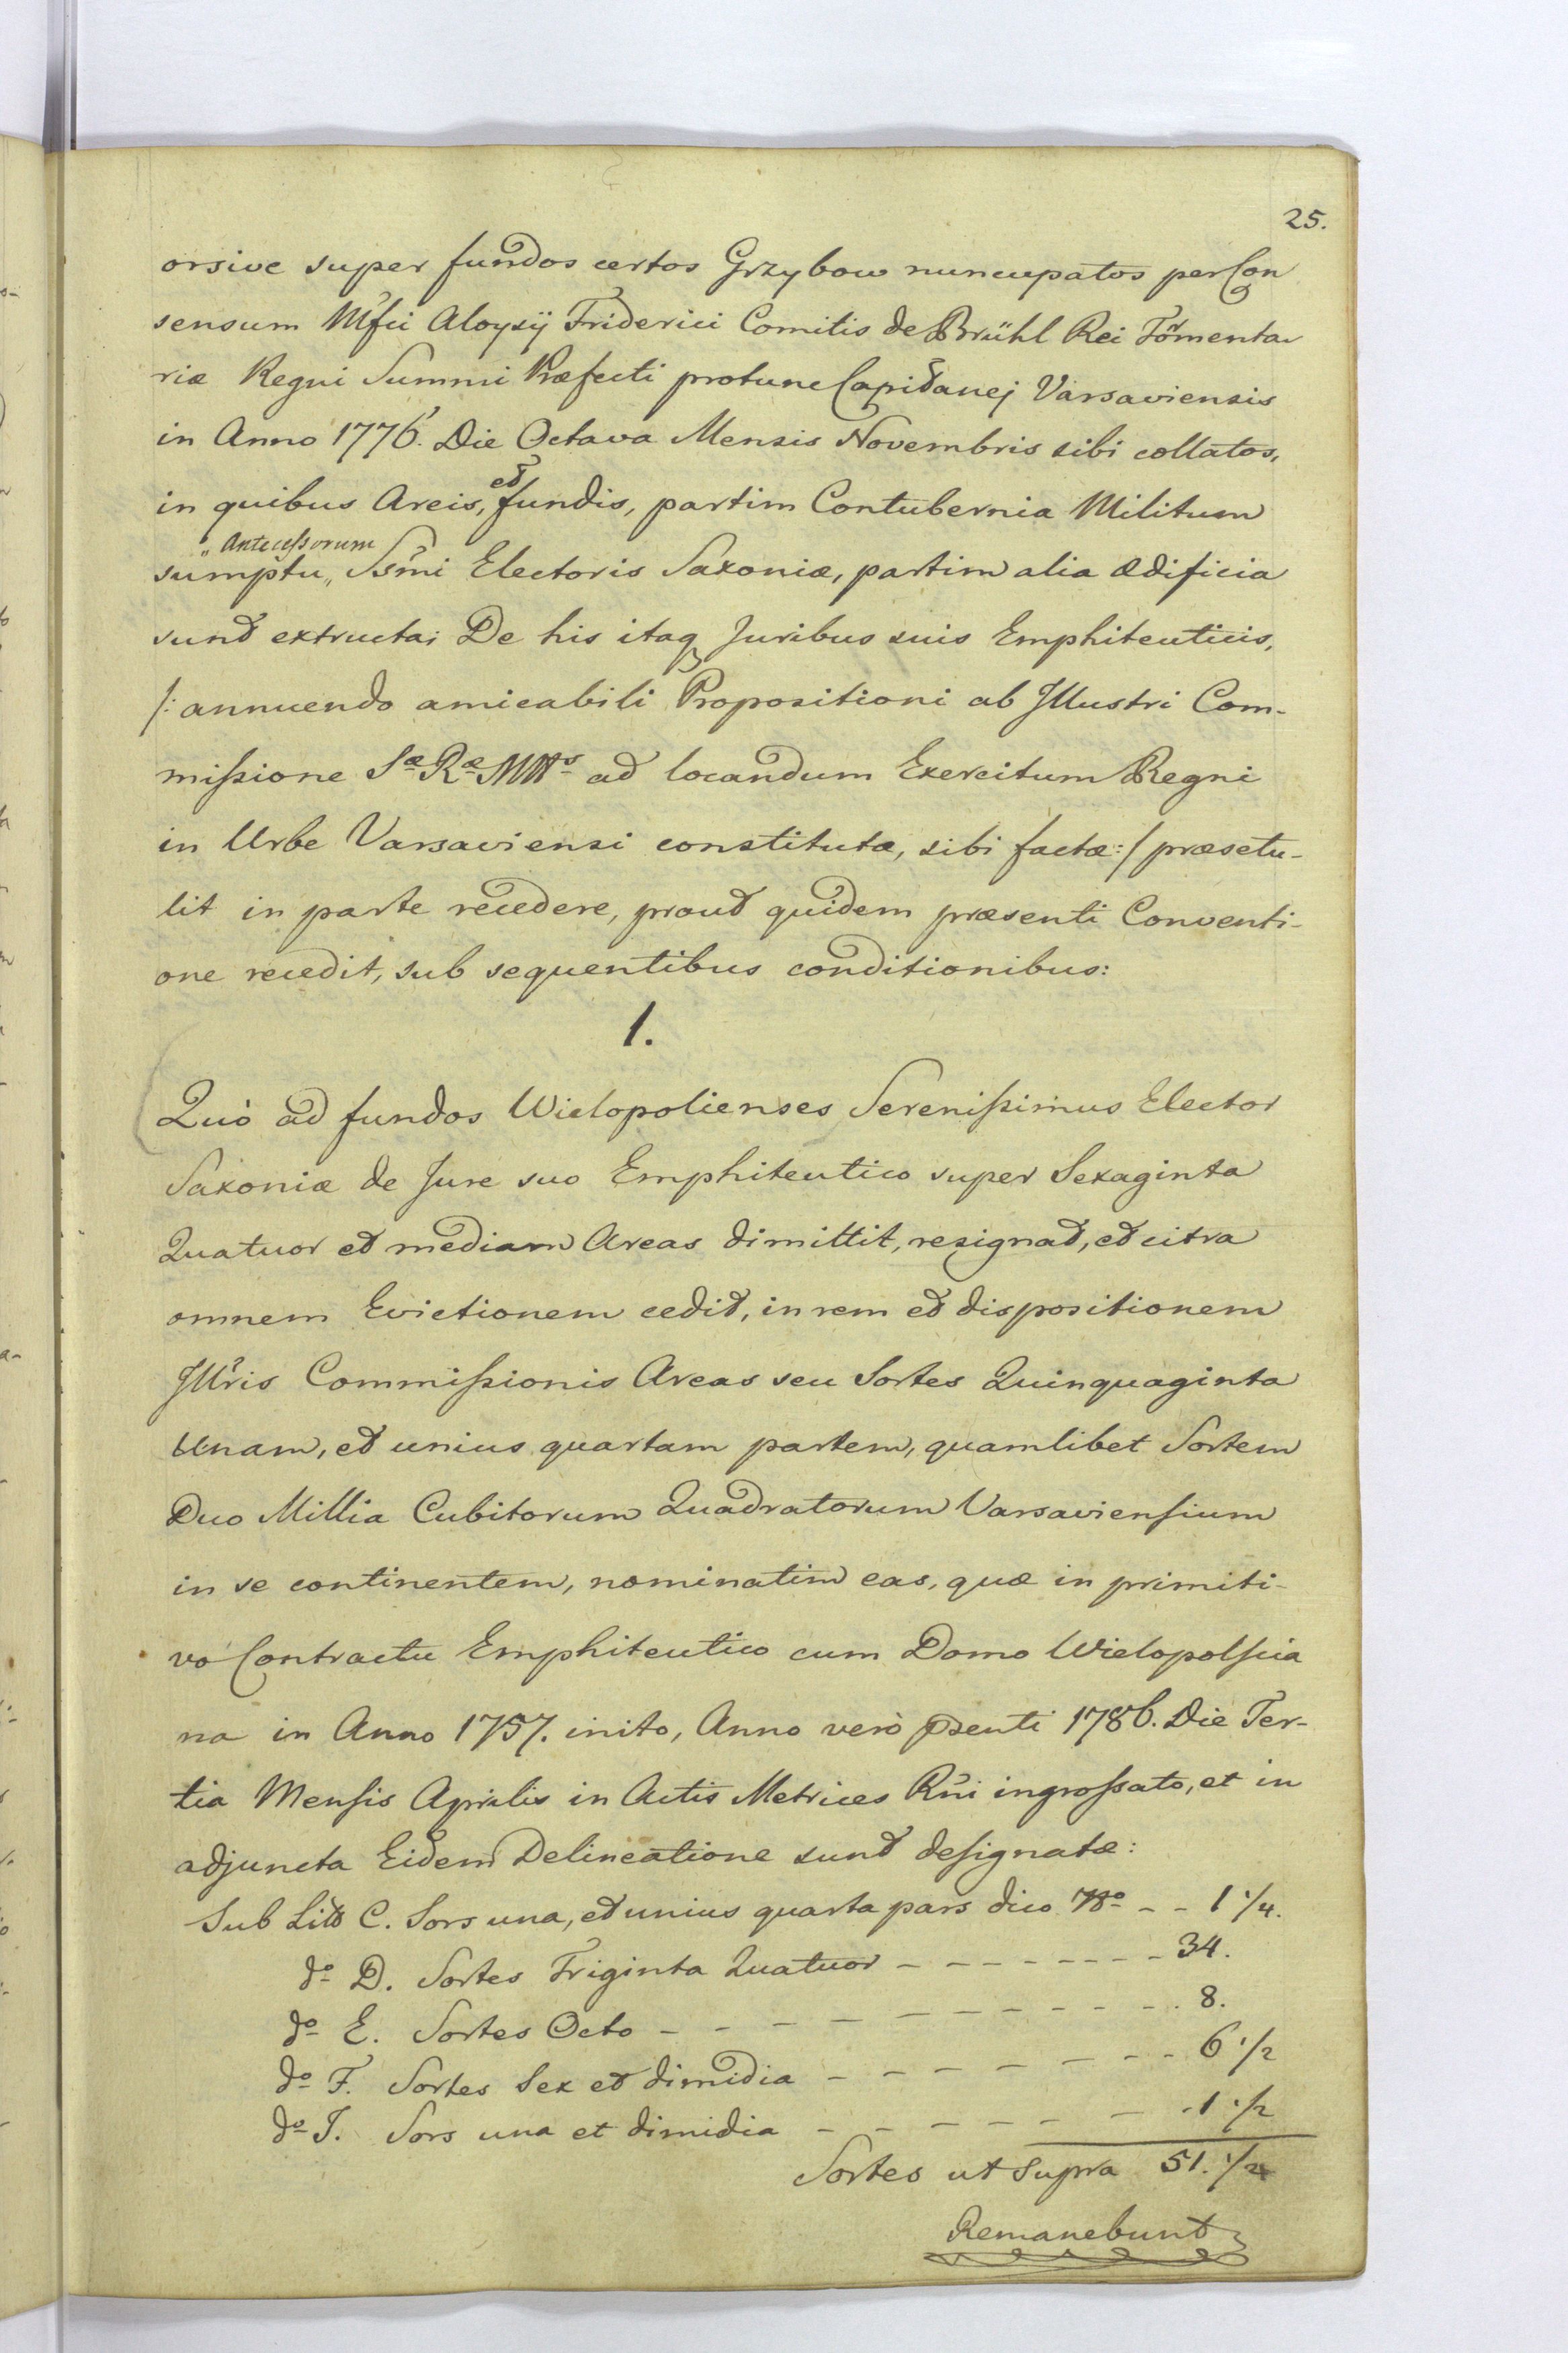 25.
orsive super fundos certos Grzybow nuncupatos per Con
sensum Mfci Aloysij Friderici Comitis de Brühl Rei Tormenta
riæ Regni Summi Præfecti protunc Capitanej Varsaviensis
in Anno 1776. Die Octava Mensis Novembris sibi collatos,
in quibus Areis, et fundis, partim Contubernia Militum
sumptu „Antecessorum„ Ssmi Electoris Saxoniæ, partim alia ædificia
sunt extructa; De his itaq Juribus suis Emphiteuticis,
/: annuendo amicabili Propositioni ab Illustri Com-
missione Sæ Ræ Mttis ad locandum Exercitum Regni
in Urbe Varsaviensi constituta, sibi factæ :/ præsetu-
lit in parte recedere, prout quidem præsenti Conventi-
one recedit, sub sequentibus conditionibus:
1.
Quò ad fundos Wielopolienses Serenissimus Elector
Saxoniæ de Jure suo Emphiteutico super Sexaginta
Quatuor et mediam Areas dimittit, resignat, et citra
omnem Evictionem cedit, in rem et dispositionem
Illris Commissionis Areas seu Sortes Quinquaginta
Unam, et unius quartam partem, quamlibet Sortem
Duo Millia Cubitorum Quadratorum Varsaviensium
in se continentem, nominatim eas, quæ in primiti-
vo Contractu Emphiteutico cum Domo Wielopolscia
na in Anno 1757. inito, Anno verò psenti 1786. Die Ter-
tia Mensis Aprilis in Actis Metrices Rni ingrossato, et in
adjuncta Eidem Delineatione sunt designatæ:
Sub Litt C. Sors una, et unius quarta pars dico No - - 1 1/4.
do D. Sortes Triginta Quatuor - - - - - - - 34.
do E. Sortes Octo - - - - - - - - - - 8.
do F. Sortes Sex et dimidia - - - - - - - 6 1/2
do J. Sors una et dimidia - - - - - - - 1 1/2
Sortes ut Supra 51. 1/4
Remanebunt